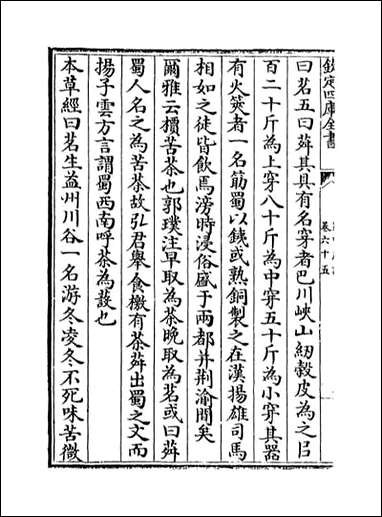 欽定四庫全書
卷六十五
曰茗五曰荈其具有名穿者巴川峽山紉穀皮為之㠯
百二十斤為上穿八十斤為中穿五十斤為小穿其器
有火筴者一名筯蜀以鐵或熟銅製之在漢揚雄司馬
相如之徒皆飲馬滂時浸俗盛于兩都并荆渝間矣
爾雅云檟苦荼也郭璞注早取為茶晚取為茗或曰荈
蜀人名之為苦茶故弘君舉食檄有茶荈出蜀之文而
揚子雲方言謂蜀西南呼茶為蔎也
本草經曰茗生益州川谷一名游冬凌冬不死味苦微